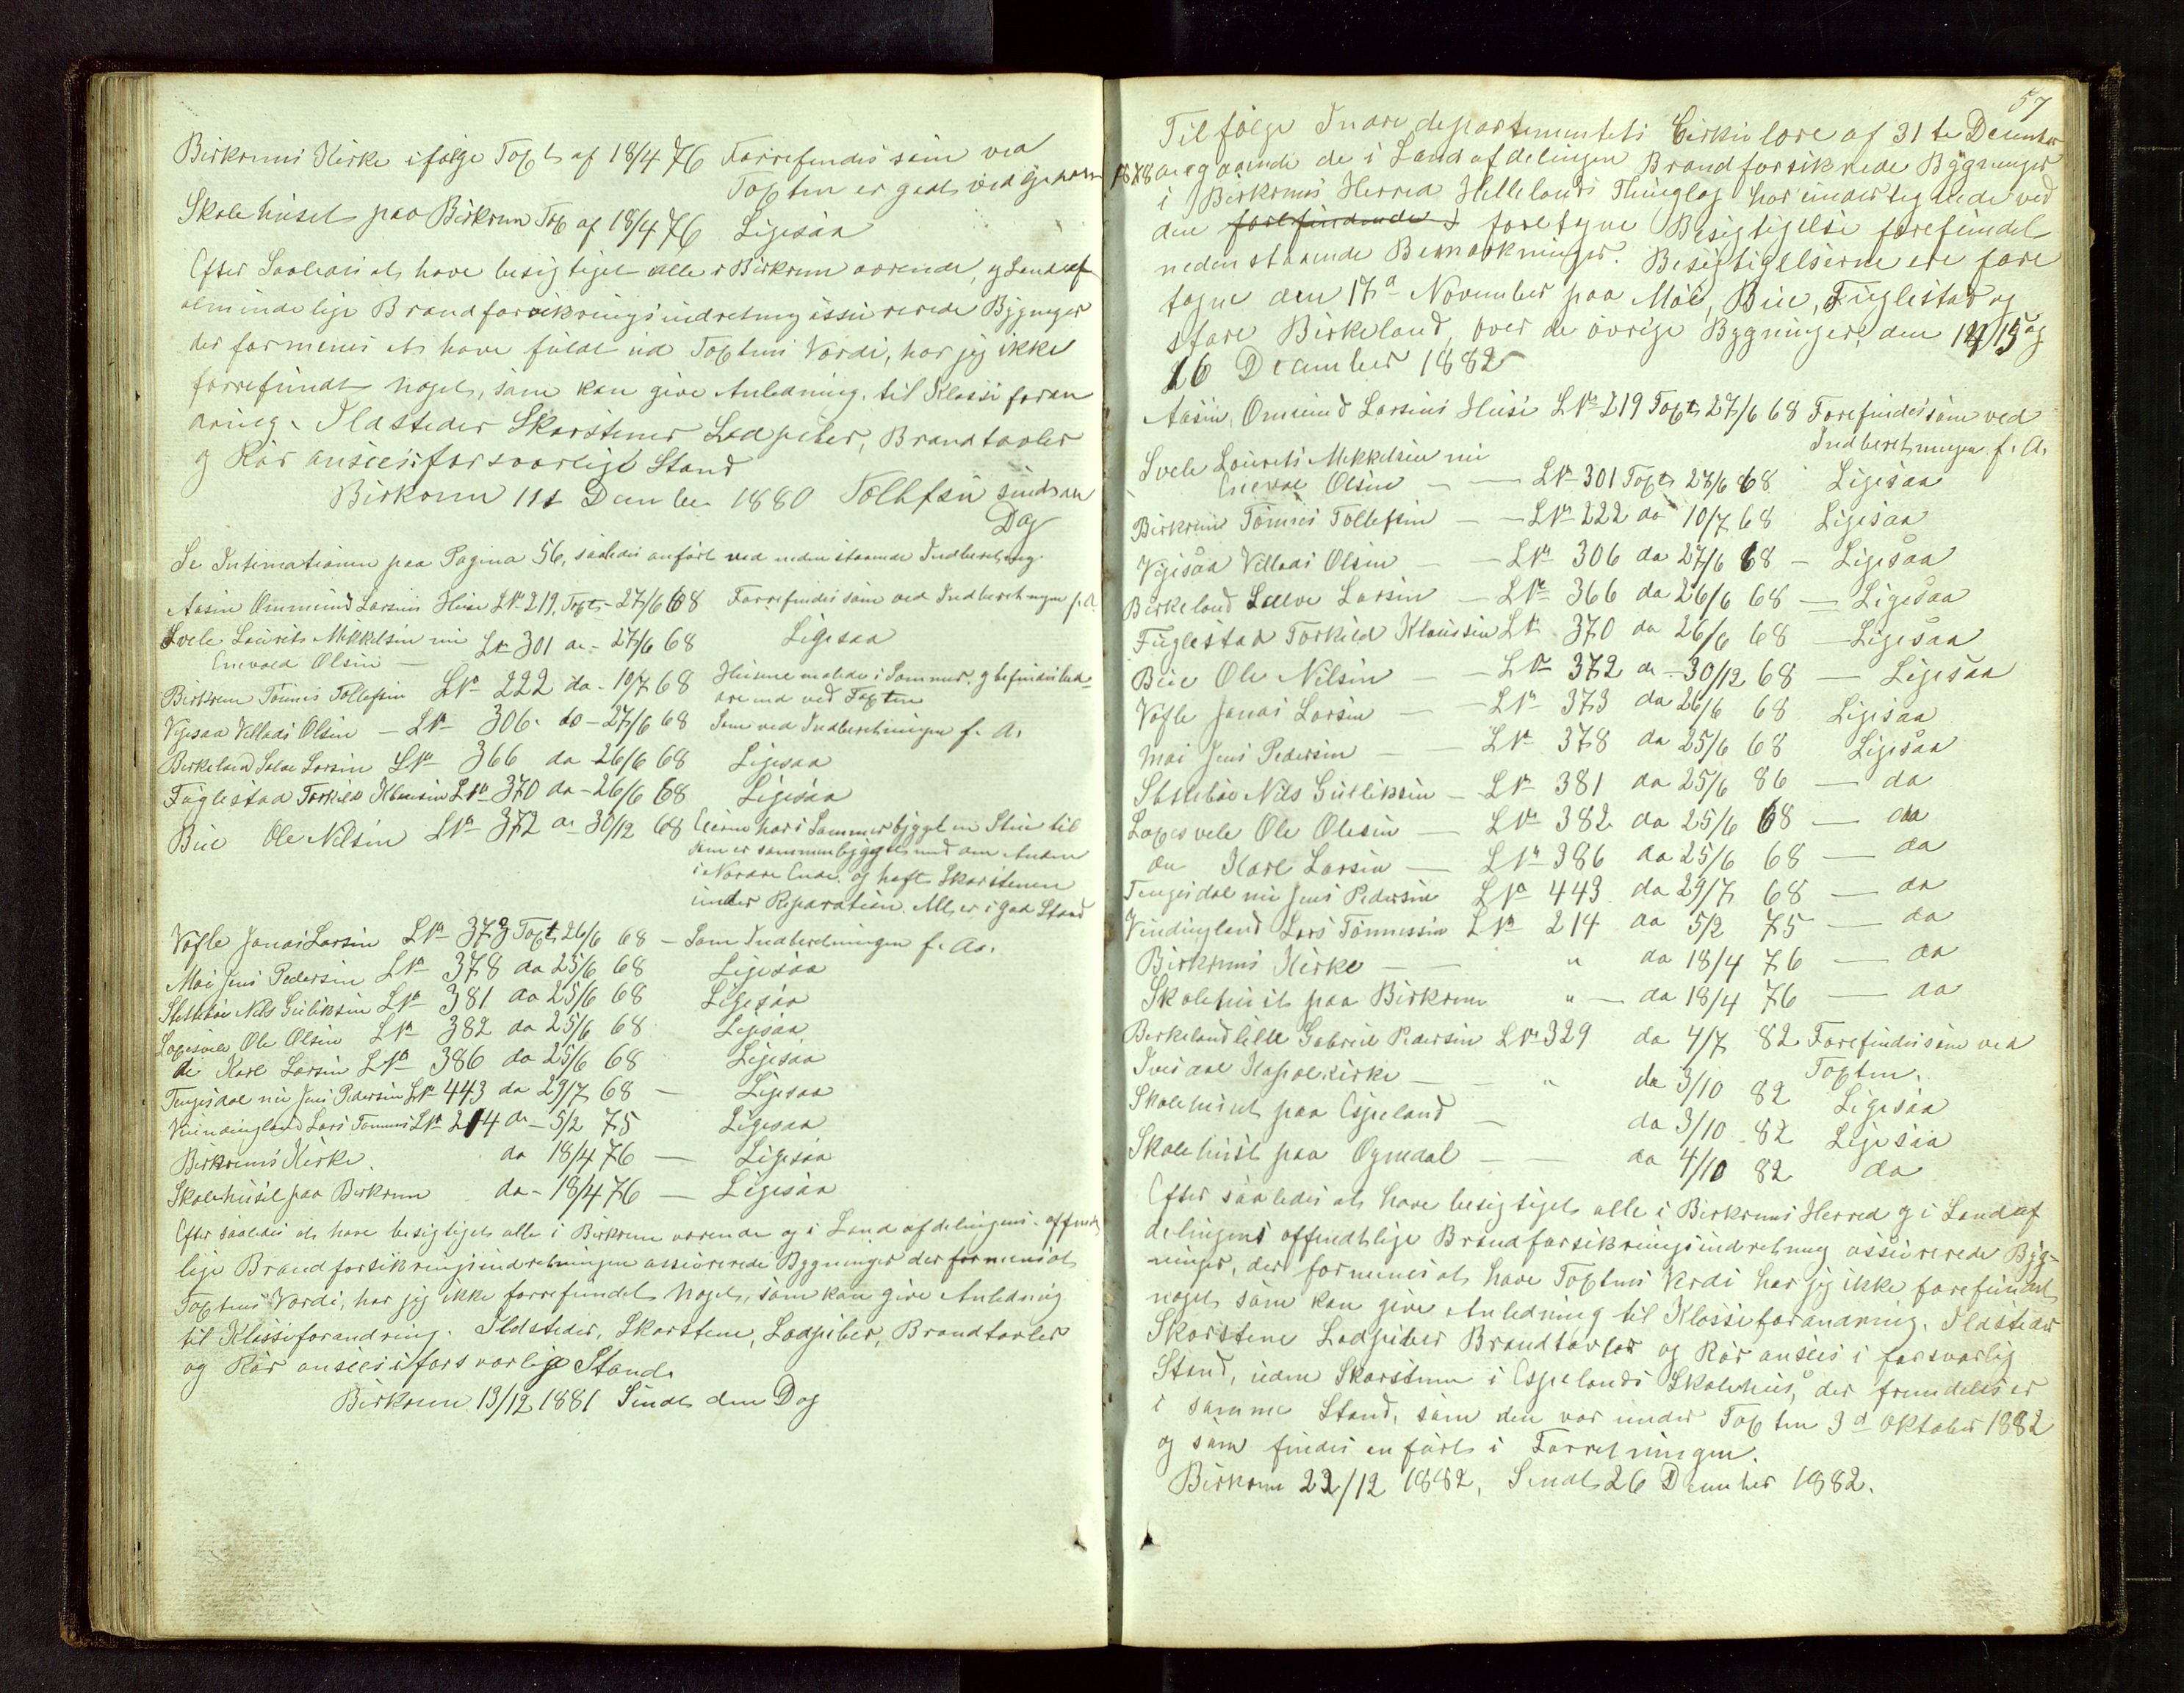 Birkrems Kirke ifølge Taxt af 18/4 76 Forrefindes som ved
Taxten er godt vedligeholdt
Skolehuset paa Birkrem Tax af 18/4 76 Ligesaa
Efter Saaledes at have besigtiget alle i Birkrem værende, og Landets
almindelige Brandforsikringsindretning assurerede Bygninger
der formenes at have fuldt ud Taxtens Værdi, har jeg ikke
forrefundt noget, som kan give Anledning til Klasseforan
dring. Ildsteder Skorstener Lodpiber, Brandtavler
og Rør ansees i forsvarlige Stand
Birkrem 11t December 1880 Tollefsen sendt sam
Dag
Se Intimationen paa Pagina 56, saaledes anført ved nedenstaaende Indberetning.
Aasen Ommund Larsens Huse LNo 219, Taxt - 27/6 68 Forrefindes som ved Indberetningen f. A.
Svele Laurits Mikkelsen nu LNo 301 do - 27/6 68 Ligesaa
Enevald Olsen —
Birkrem Tønnes Tollefsen LNo 222 do - 10/7 68 Husene malede i Sommer, og befindes bed-
re end ved Taxten
Vigesaa Villads Olsen — LNo 306 do - 27/6 68 Som ved Indberetningen f. A.
Birkeland Salve Larsen LNo 366 do 26/6 68 Ligesaa
Fuglestad Torkild Klausen LNo 370 do - 26/6 68 Ligesaa
Bue Ole Nilsen LNo 372 do 30/12 68 Eieren har i Sommer bygget en Stue til
som er sammenbygget med den Anden
i Nordre Ende, og havt Skorstenen
under Reparation. Alt er i god Stand
Vasle Jonas Larsen LNo 373 Taxt 26/6 68 — Som Indberetningen f. Aa.
Moi Jens Pedersen LNo 378 do 25/6 68 Ligesaa
Støttebøe Nils Gulliksen LNo 381 do 25/6 68 Ligesaa
Lagesvele Ole Olsen LNo 382 do 25/6 68 Ligesaa
do Karl Larsen LNo 386 do 25/6 68 Ligesaa
Tengesdal nu Jens Pedersen LNo 443 do 29/7 68 — Ligesaa
Vundingland Lars Tønnes LNo 214 do - 5/2 75 Ligesaa
Birkrems Kirke. do 18/4 76 — Ligesaa
Skolehuset paa Birkrem do - 18/4 76 — Ligesaa
Efter saaledes at have besigtiget alle i Birkrem værende og i Landafdelingens offent
lige Brandforsikringsindretningen assurerede Bygninger der formenes at
Taxtens Værdi, har jeg ikke forrefundet noget, som kan give Anledning
til Klasseforandring. Ildsteder, Skorstene, Lodpiber, Brandtavler
og Rør ansees i forsvarlige Stand.
Birkrem 13/12 1881 Sendt den Dag
57
Tilfølge Indredepartementets Cirkulære af 31te December
1878 angaaende de i Landafdelingen Brandforsikrede Bygninger
i Birkrems Herred Hellelands Thinglag har undertegnede ved
den forefindende s foretagne Besigtigelse forefundet
nedenstaaende Bemærkninger. Besigtigelserne ere fore
tagne den 17d November paa Moi, Bue, Fuglestad og
store Birkeland, over de øvrige Bygninger, den 14/15 og
16 December 1882
Aasen, Ommund Larsens Huse LNo 219 Taxt 27/6 68 Forefindes som ved
Indberetningen f. A.
Svele Laurits Mikkelsen nu
Enevold Olsen — — LNo 301 Taxt 27/6 68 Ligesaa
Birkrem Tønnes Tollefsen — — LNo 222 do 10/7 68 Ligesaa
Vigesaa Villads Olsen — — LNo 306 do 27/6 68 — Ligesaa
Birkeland Salve Larsen — LNo 366 do 26/6 68 — Ligesaa
Fuglestad Torkild Klausen LNo 370 do 26/6 68 — Ligesaa
Bue Ole Nilsen — LNo 372 do - 30/12 68 — Ligesaa
Vasle Jonas Larsen — — LNo 373 do 26/6 68 Ligesaa
Moi Jens Pedersen — — LNo 378 do 25/6 68 Ligesaa
Støttebøe Nils Gulliksen — LNo 381 do 25/6 86 — do
Lagesvele Ole Olesen — LNo 382 do 25/6 68 — do
do Karl Larsen — LNo 386 do 25/6 68 — do
Tengesdal nu Jens Pedersen LNo 443 do 29/7 68 — do
Vundingland Lars Tønnessen LNo 214 do 5/2 75 — do
Birkrems Kirke — — " do 18/4 76 — do
Skolehuset paa Birkrem " — do 18/4 76 — do
Berkeland lille Gabriel Pedersen LNo 329 do 4/7 82 Forefindes som ved
Taxten.
Ivesdal Kapelkirke — — " do 3/10 82 Ligesaa
Skolehuset paa Espeland — do 3/10 82 Ligesaa
Skolehuset paa Ognedal — — do 4/10 82 do
Efter saaledes at have besigtiget alle i Birkrems Herred og i Landaf
delingens offendtlige Brandforsikringsindretning assurerede Byg-
ninger, der formenes at have Taxtens Verdi har jeg ikke forefundet
noget som kan give Anledning til Klasseforandring. Ildsteder
Skorstene Lodpiber Brandtavler og Rør ansees i forsvarlig
Stand, uden Skorstenen i Espelands Skolehus, der fremdeles er
i samme Stand, som den var under Taxten 3d Oktober 1882
og som findes anført i Forretningen.
Birkrem 22/12 1882, Sendt 26 December 1882.